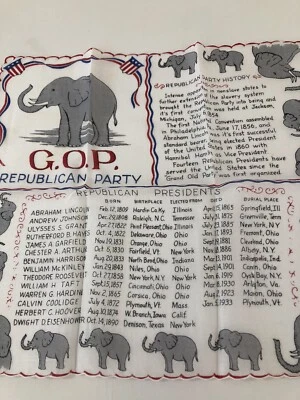 G.O.P.
REPUBLICAN PARTY
REPUBLICAN PARTY HISTORY
Intense opposition in nonslave states to
further extension of the slavery system
brought the Republican Party into being and
it's first was held at Jackson,
Michigan, July 1854
The first National Convention assembled
in Philadelphia, Pa., June 17, 1856, and
Abraham Lincoln was it's first successful
standard bearer being elected President
of the United States in 1860 with
Hannibal Hamlin as Vice President.
Fourteen Republican Presidents have
served the United States since the
Grand Old Party was first organized.
REPUBLICAN PRESIDENTS
BORN BIRTHPLACE ELECTED FROM DIED BURIAL PLACE
ABRAHAM LINCOLN Feb. 12, 1809 Hardin Co. Ky Illinois 1865 Springfield, Ill
ANDREW JOHNSON Dec. 29, 1808 Raleigh, N.C. Tennessee July 31, 1875 Greenville, Tenn
ULYSSES S. GRANT Apr. 27, 1822 Point Pleasant, Ohio Illinois July 23, 1885 New York, N.Y.
RUTHERFORD B. HAYES Oct. 4, 1822 Delaware, Ohio Ohio Jan. 17, 1893 Fremont, Ohio
JAMES A. GARFIELD Nov. 19, 1831 Orange, Ohio Ohio Sept. 19, 1881 Cleveland, Ohio
CHESTER A. ARTHUR Oct. 5, 1830 Fairfield, Vt. New York Nov. 18, 1886 Albany, N.Y.
BENJAMIN HARRISON Aug. 20, 1833 North Bend, Ohio Indiana Mar. 13, 1901 Indianapolis, Ind.
WILLIAM McKINLEY Jan. 29, 1843 Niles, Ohio Ohio Sept. 14, 1901 Canton, Ohio
THEODORE ROOSEVELT Oct. 27, 1858 New York, N.Y. New York Jan. 6, 1919 Oyster Bay, N.Y.
WILLIAM H. TAFT Sept. 15, 1857 Cincinnati, Ohio Ohio Mar. 8, 1930 Arlington, Va.
WARREN G. HARDING Nov. 2, 1865 Corsica, Ohio Ohio Aug. 2, 1923 Marion, Ohio
CALVIN COOLIDGE July 4, 1872 Plymouth, Vt. Mass Jan. 5, 1933 Plymouth, Vt.
HERBERT C. HOOVER Aug. 10, 1874 W. Branch, Iowa Calif
DWIGHT D. EISENHOWER Oct. 14, 1890 Denison, Texas New York